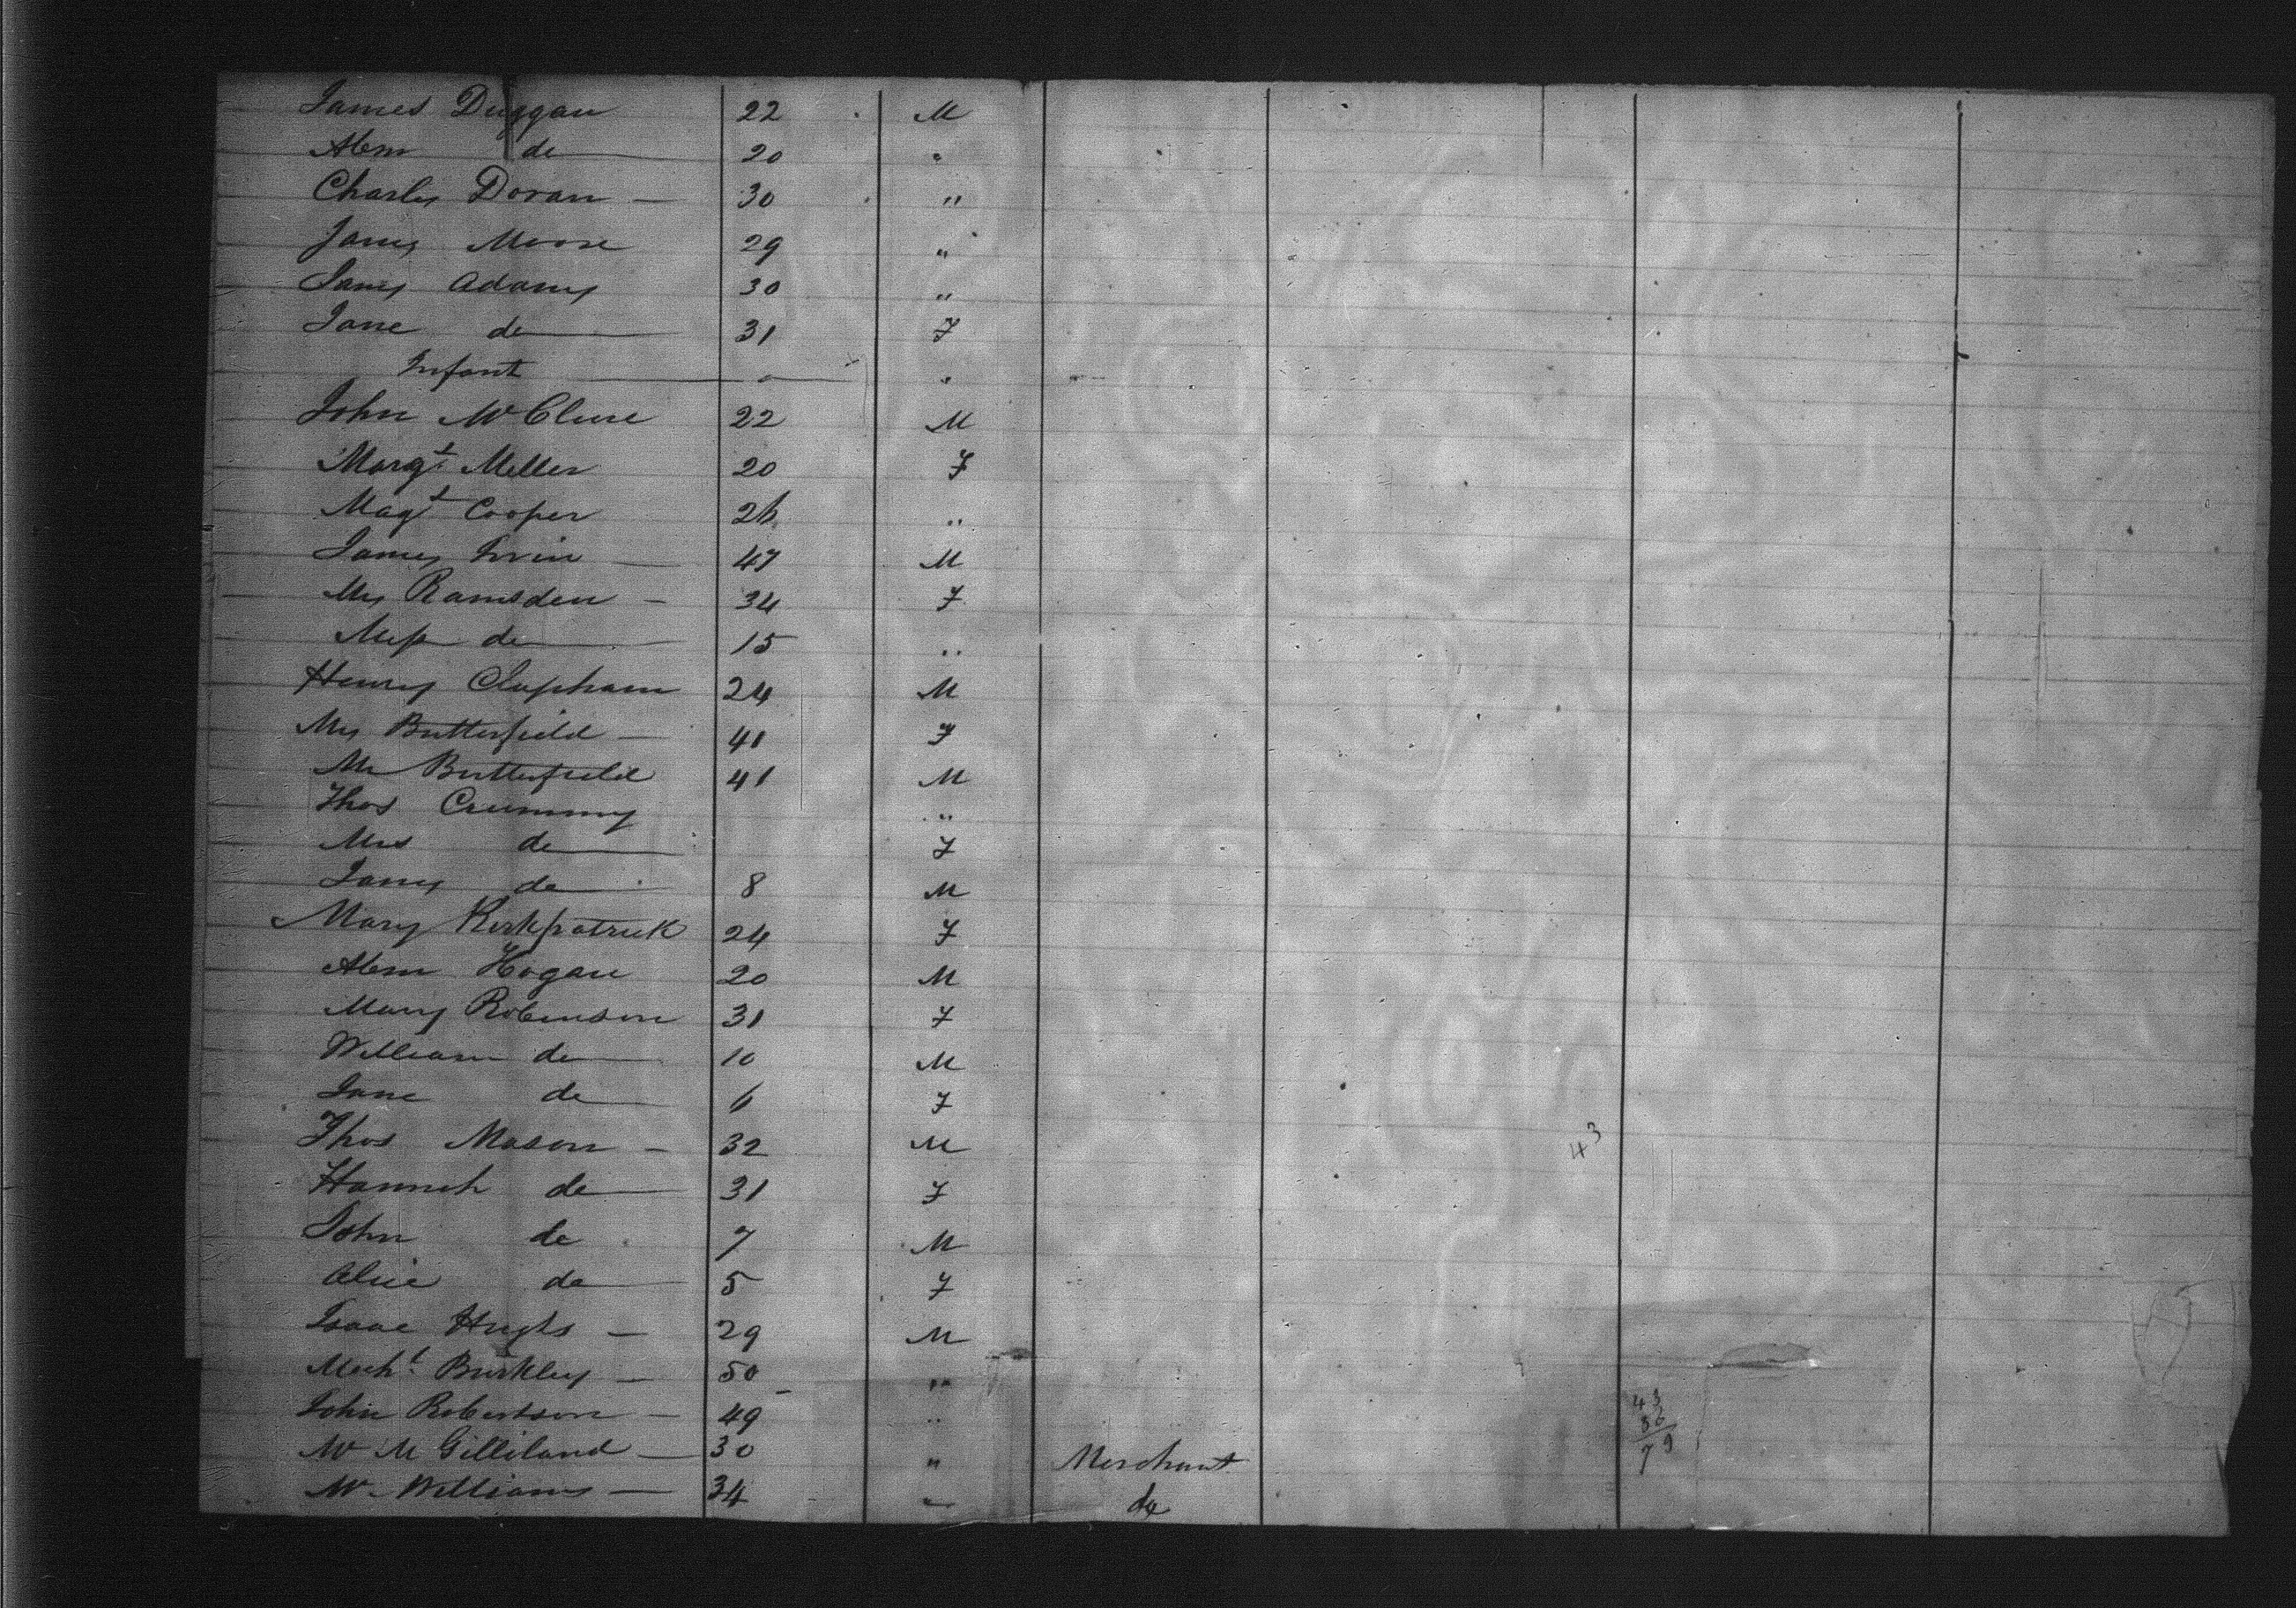 James Duggan 22 M
Alexr do 20 "
Charles Doran — 30 "
James Moore 29 "
James Adams 30 "
Jane do 31 F
Infant "
John McClure 22 M
Margt Miller 20 F
Magt Cooper 26 "
James Irvin — 47 M
Mrs Ramsden — 34 F
Miss do 15 "
Henry Clapham 24 M
Mrs Butterfield — 41 F
Mr Butterfield 41 M
Thos Crummy "
Mrs do F
James do 8 M
Mary Kirkpatrick 24 F
Alexr Hogan 20 M
Mary Robinson 31 F
William do 10 M
Jane do 6 F
Thos Mason — 32 M
43
Hannah do 31 F
John do 7 M
Alice do 5 F
Isaac Hughs — 29 M
Michl Burkley — 50 "
John Robertson — 49 "
43
36
79
Mr McGilliland — 30 " Merchant
Mr Williams — 34 " do